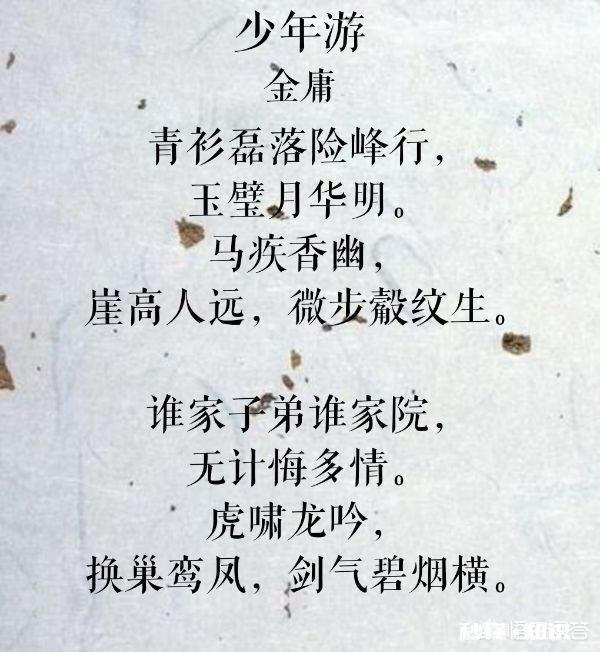 少年游
金庸
青衫磊落险峰行，
玉璧月华明。
马疾香幽，
崖高人远，微步縠纹生。
谁家子弟谁家院，
无计悔多情。
虎啸龙吟，
换巢鸾凤，剑气碧烟横。
秒懂